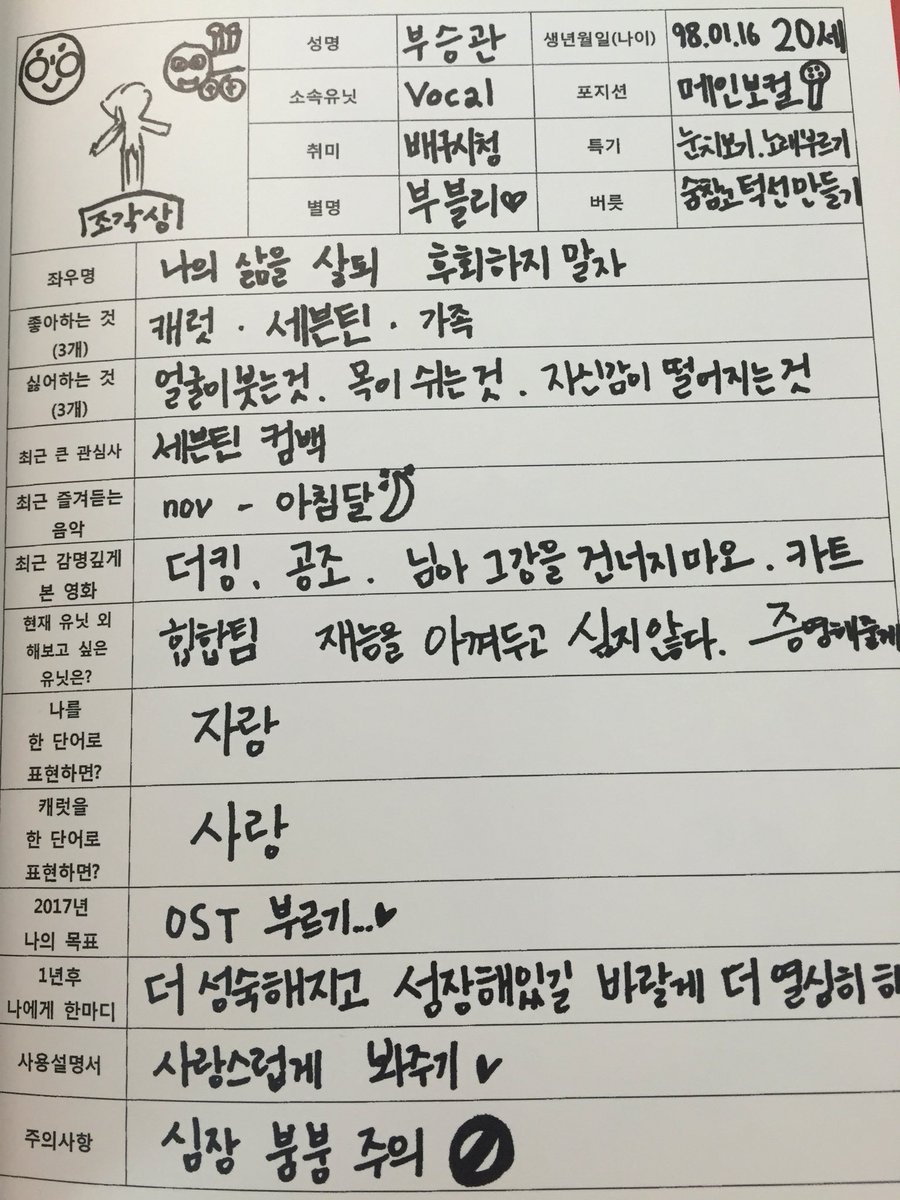 조각상
성명 부승관 생년월일(나이) 98.01.16 20세
소속유닛 Vocal 포지션 메인보컬
취미 배구시청 특기 눈치보기.노래부르기
별명 부블리♡ 버릇 숭참고턱선만들기
좌우명 나의 삶을 살되 후회하지 말자
좋아하는 것
(3개)
캐럿 · 세븐틴 · 가족
싫어하는 것
(3개)
얼굴이붓는것. 목이 쉬는것. 자신감이 떨어지는것
최근 큰 관심사 세븐틴 컴백
최근 즐겨듣는
음악
nov - 아침달
최근 감명깊게
본 영화
더킹. 공조. 님아 그강을 건너지마오. 카트
현재 유닛 외
해보고 싶은
유닛은?
힙합팀 재능을 아껴두고 싶지않다. 증명해줄게
나를
한 단어로
표현하면?
자랑
캐럿을
한 단어로
표현하면?
사랑
2017년
나의 목표
OST 부르기...♥
1년후
나에게 한마디
더 성숙해지고 성장해있길 바랄게 더 열심히 하
사용설명서 사랑스럽게 봐주기 ♥
주의사항 심장 붕붕 주의